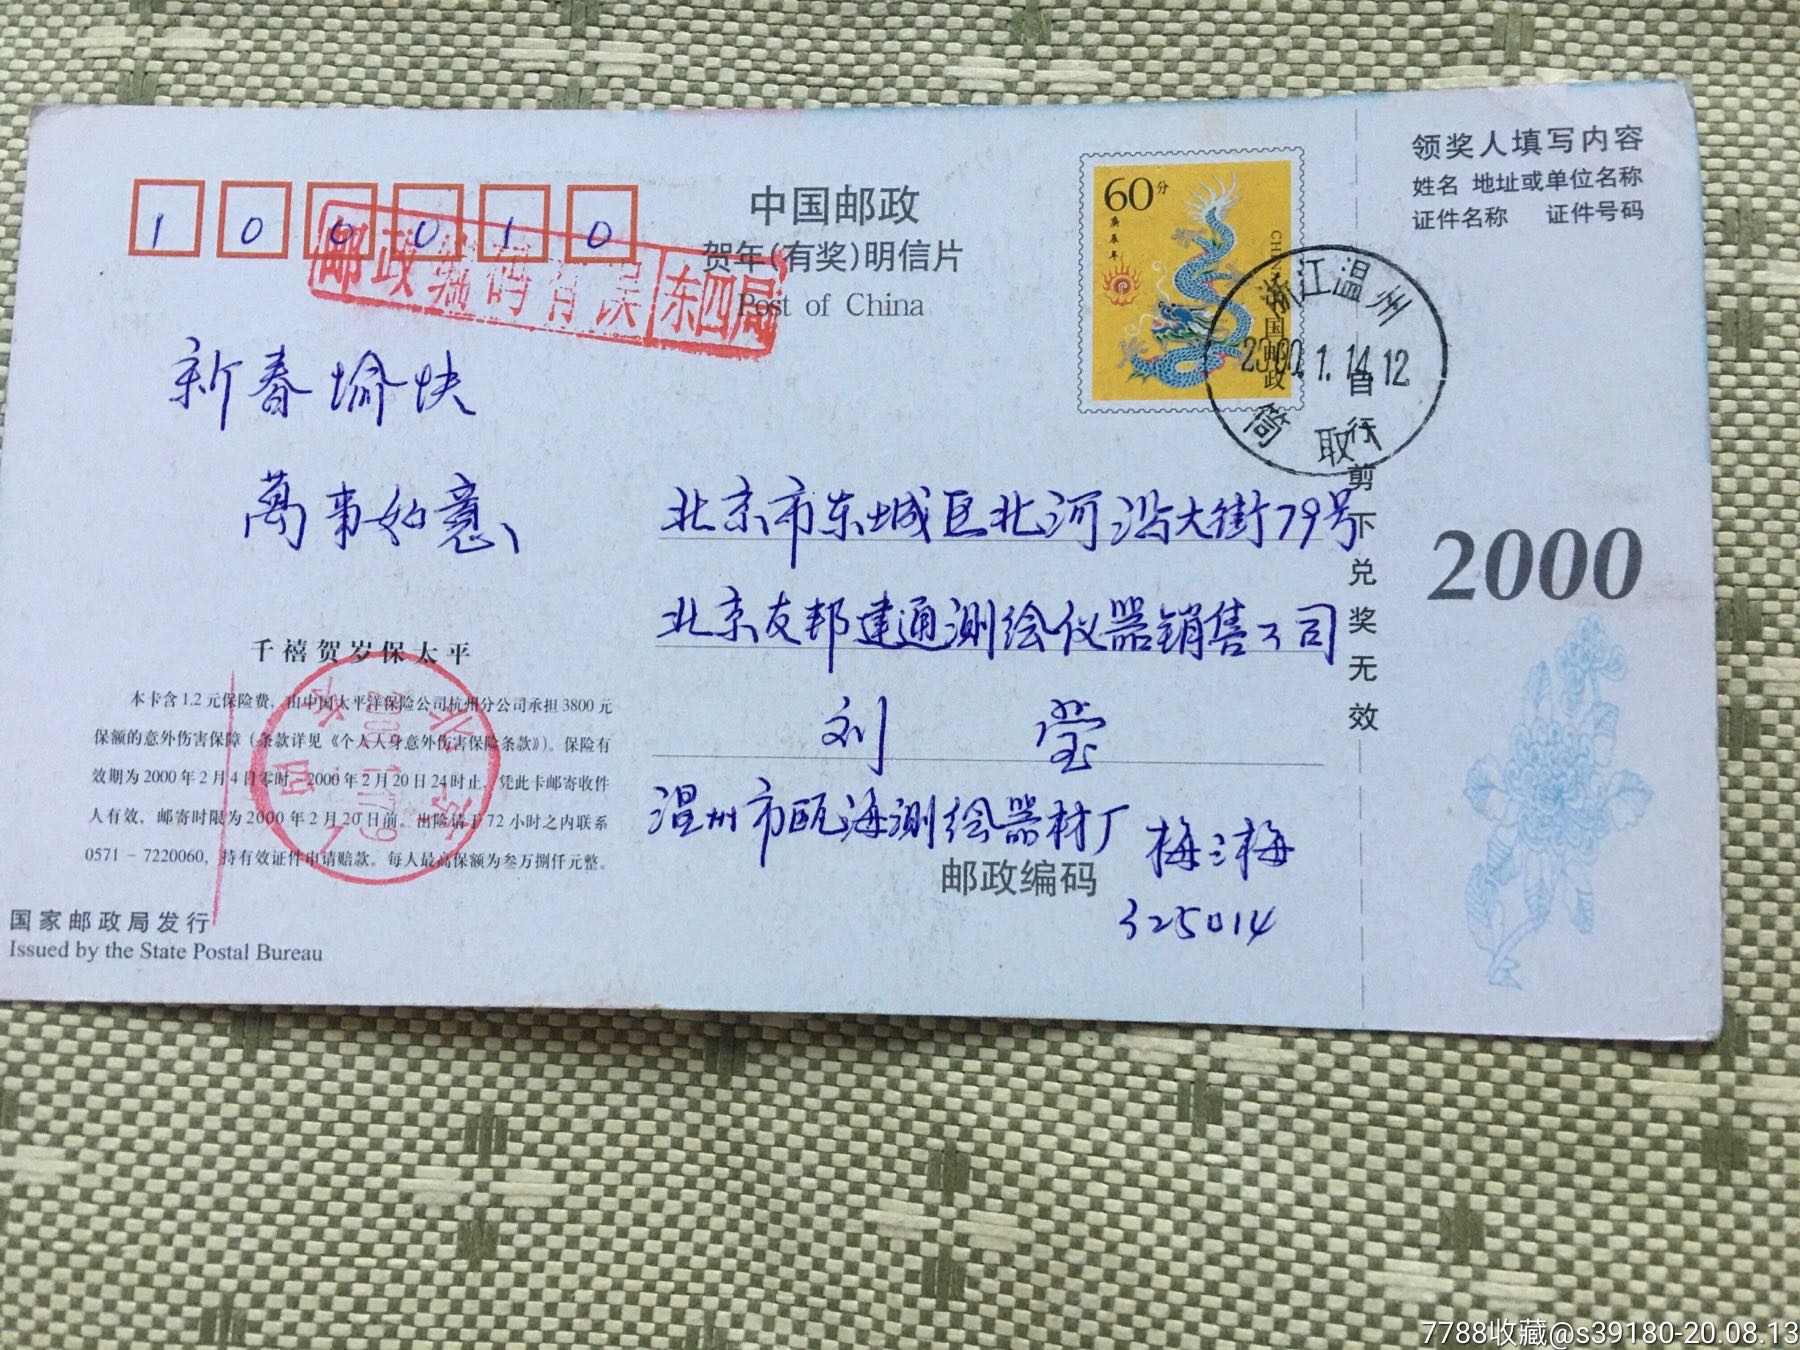 1 0 0 0 1 0
邮政编码有误 东四局
中国邮政
贺年(有奖)明信片
Post of China
60分
庚辰年
中国邮政
浙江温州
2000.1.14.12
取
领奖人填写内容
姓名 地址或单位名称
证件名称 证件号码
自行剪下兑奖无效
2000
新春愉快
萬事如意、
北京市东城区北河沿大街79号
北京友邦建通测绘仪器销售公司
刘 莹
温州市瓯海测绘器材厂 梅三梅
邮政编码
325014
千禧贺岁保太平
本卡含1.2元保险费，由中国太平洋保险公司杭州分公司承担3800元
保额的意外伤害保障（条款详见《个人人身意外伤害保险条款》）。保险有
效期为2000年2月4日零时，2000年2月20日24时止，凭此卡邮寄收件
人有效，邮寄时限为2000年2月20日前。出险请于72小时之内联系
0571－7220060，持有效证件申请赔款。每人最高保额为叁万捌仟元整。
北京
东四
国家邮政局发行
Issued by the State Postal Bureau
7788收藏@s39180-20.08.13